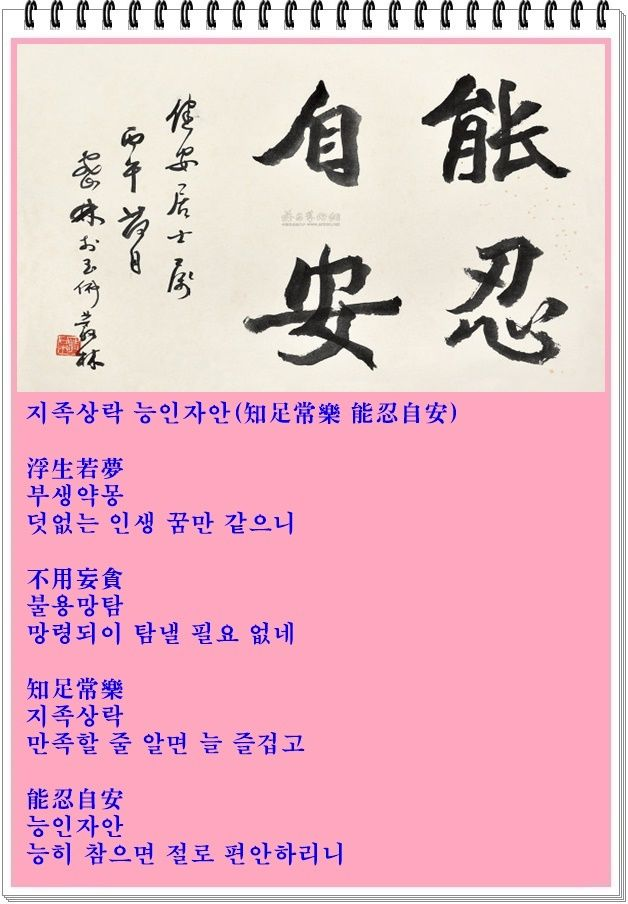 能忍
自安
健安居士屬
丙午
지족상락 능인자안(知足常樂 能忍自安)
浮生若夢
부생약몽
덧없는 인생 꿈만 같으니
不用妄貪
불용망탐
망령되이 탐낼 필요 없네
知足常樂
지족상락
만족할 줄 알면 늘 즐겁고
能忍自安
능인자안
능히 참으면 절로 편안하리니